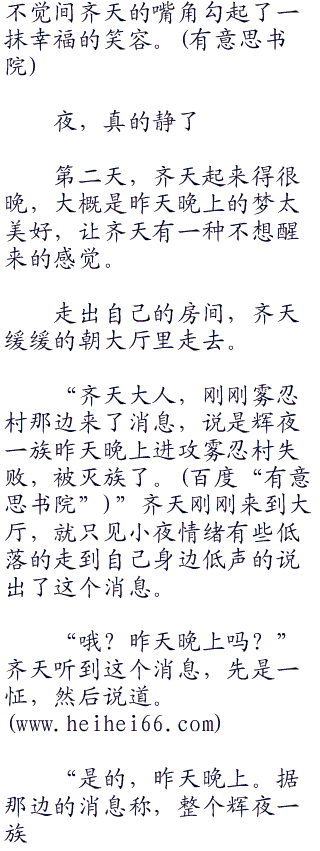 不觉间齐天的嘴角勾起了一
抹幸福的笑容。(有意思书
院)
夜，真的静了
第二天，齐天起来得很
晚，大概是昨天晚上的梦太
美好，让齐天有一种不想醒
来的感觉。
走出自己的房间，齐天
缓缓的朝大厅里走去。
“齐天大人，刚刚雾忍
村那边来了消息，说是辉夜
一族昨天晚上进攻雾忍村失
败，被灭族了。(百度“有意
思书院”)”齐天刚刚来到大
厅，就只见小夜情绪有些低
落的走到自己身边低声的说
出了这个消息。
“哦？昨天晚上吗？”
齐天听到这个消息，先是一
怔，然后说道。
(www.heihei66.com)
“是的，昨天晚上。据
那边的消息称，整个辉夜一
族